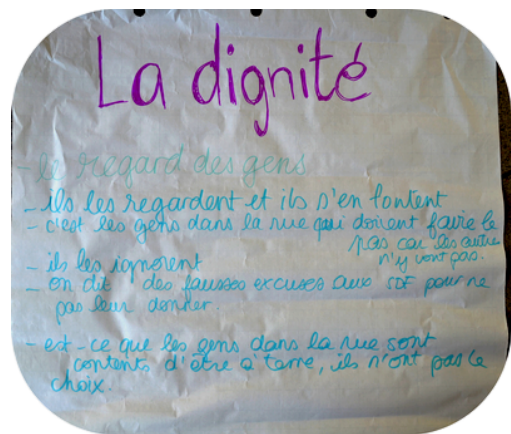 La dignité
- le regard des gens
- ils les regardent et ils s'en foutent
- c'est les gens dans la rue qui doivent faire le
pas car les autre
n'y vont pas.
- ils les ignorent
- on dit des fausses excuses aux SDF pour ne
pas leur donner.
- est-ce que les gens dans la rue sont
contents d'être à terre, ils n'ont pas le
choix.